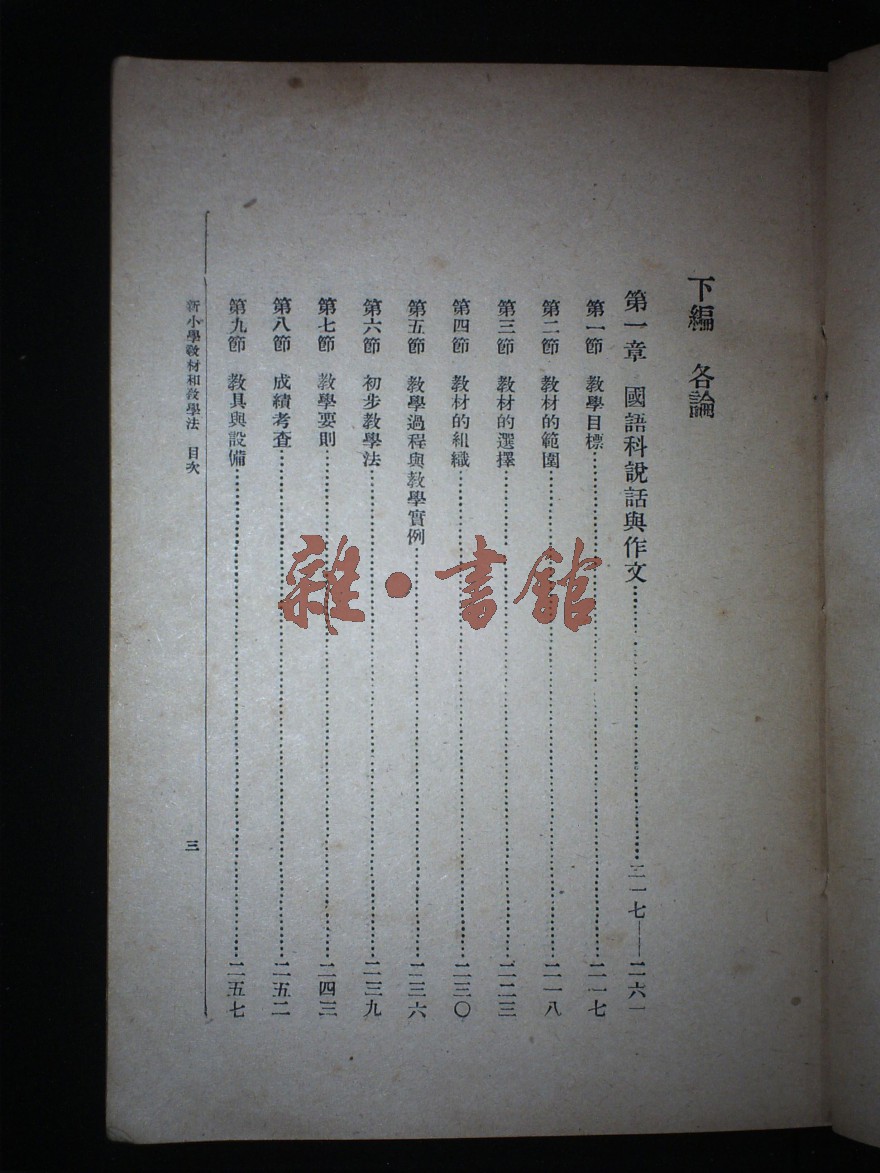 下編　各論
第一章　國語科說話與作文……………………二一七——二六一
第一節　教學目標……………………二一七
第二節　教材的範圍……………………二一八
第三節　教材的選擇……………………二二三
第四節　教材的組織……………………二三〇
第五節　教學過程與教學實例……………………二三六
第六節　初步教學法……………………二三九
第七節　教學要則……………………二四三
第八節　成績考查……………………二五二
第九節　教具與設備……………………二五七
新小學教材和教學法　目次
三
雜·書館